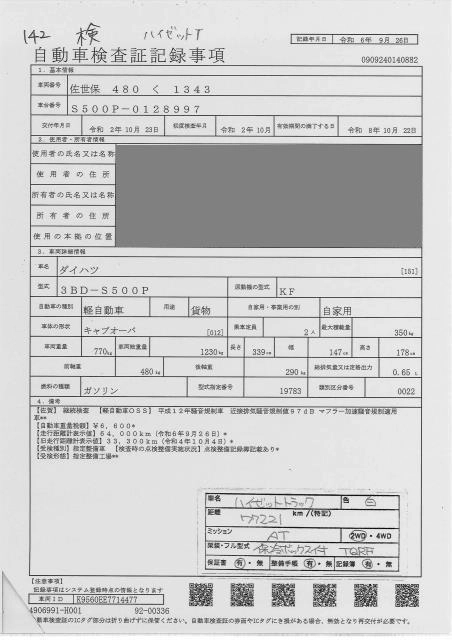 142 検 ハイゼットT
記録年月日 令和 6年 9月 26日
自動車検査証記録事項
0909240140882
1. 基本情報
車両番号 佐世保 480 く 1343
車台番号 S500P-0128997
交付年月日 令和 2年 10月 23日 初度検査年月 令和 2年 10月 有効期間の満了する日 令和 8年 10月 22日
2. 使用者・所有者情報
使用者の氏名又は名称
使用者の住所
所有者の氏名又は名称
所有者の住所
使用の本拠の位置
3. 車両詳細情報
車名 ダイハツ [151]
型式 3BD-S500P 原動機の型式 KF
自動車の種別 軽自動車 用途 貨物 自家用・事業用の別 自家用
車体の形状 キャブオーバ [012] 乗車定員 2人 最大積載量 350kg
車両重量 770kg 車両総重量 1230kg 長さ 339cm 幅 147cm 高さ 178cm
前軸重 480kg 後軸重 290kg 総排気量又は定格出力 0.65 L
燃料の種類 ガソリン 型式指定番号 19783 類別区分番号 0022
4. 備考
【佐賀】 継続検査 【軽自動車OSS】 平成12年騒音規制車 近接排気騒音規制値97dB マフラー加速騒音規制適用
車**
【自動車重量税額】 ¥6,600*
【走行距離計表示値】 64,000km (令和6年9月26日)*
【旧走行距離計表示値】 33,300km (令和4年10月4日)*
【受検種別】指定整備車 【検査時の点検整備実施状況】点検整備記録簿記載あり*
【受検形態】指定整備工場**
車名 ハイゼットトラック 色 白
距離 77221 km/(特記)
ミッション AT 2WD・4WD
架装・フル型式 保冷ボックス付
保証書 有・無 整備手帳 有・無 記録簿 有・無
【注意事項】
記録事項はシステム登録時点の情報となります
車両ID E9560EE7714477
4906991-H001 92-00336
自動車検査証のICタグ部分は折り曲げずに保管ください。自動車検査証の券面やICタグにき損がある場合、無効となり再交付が必要です。